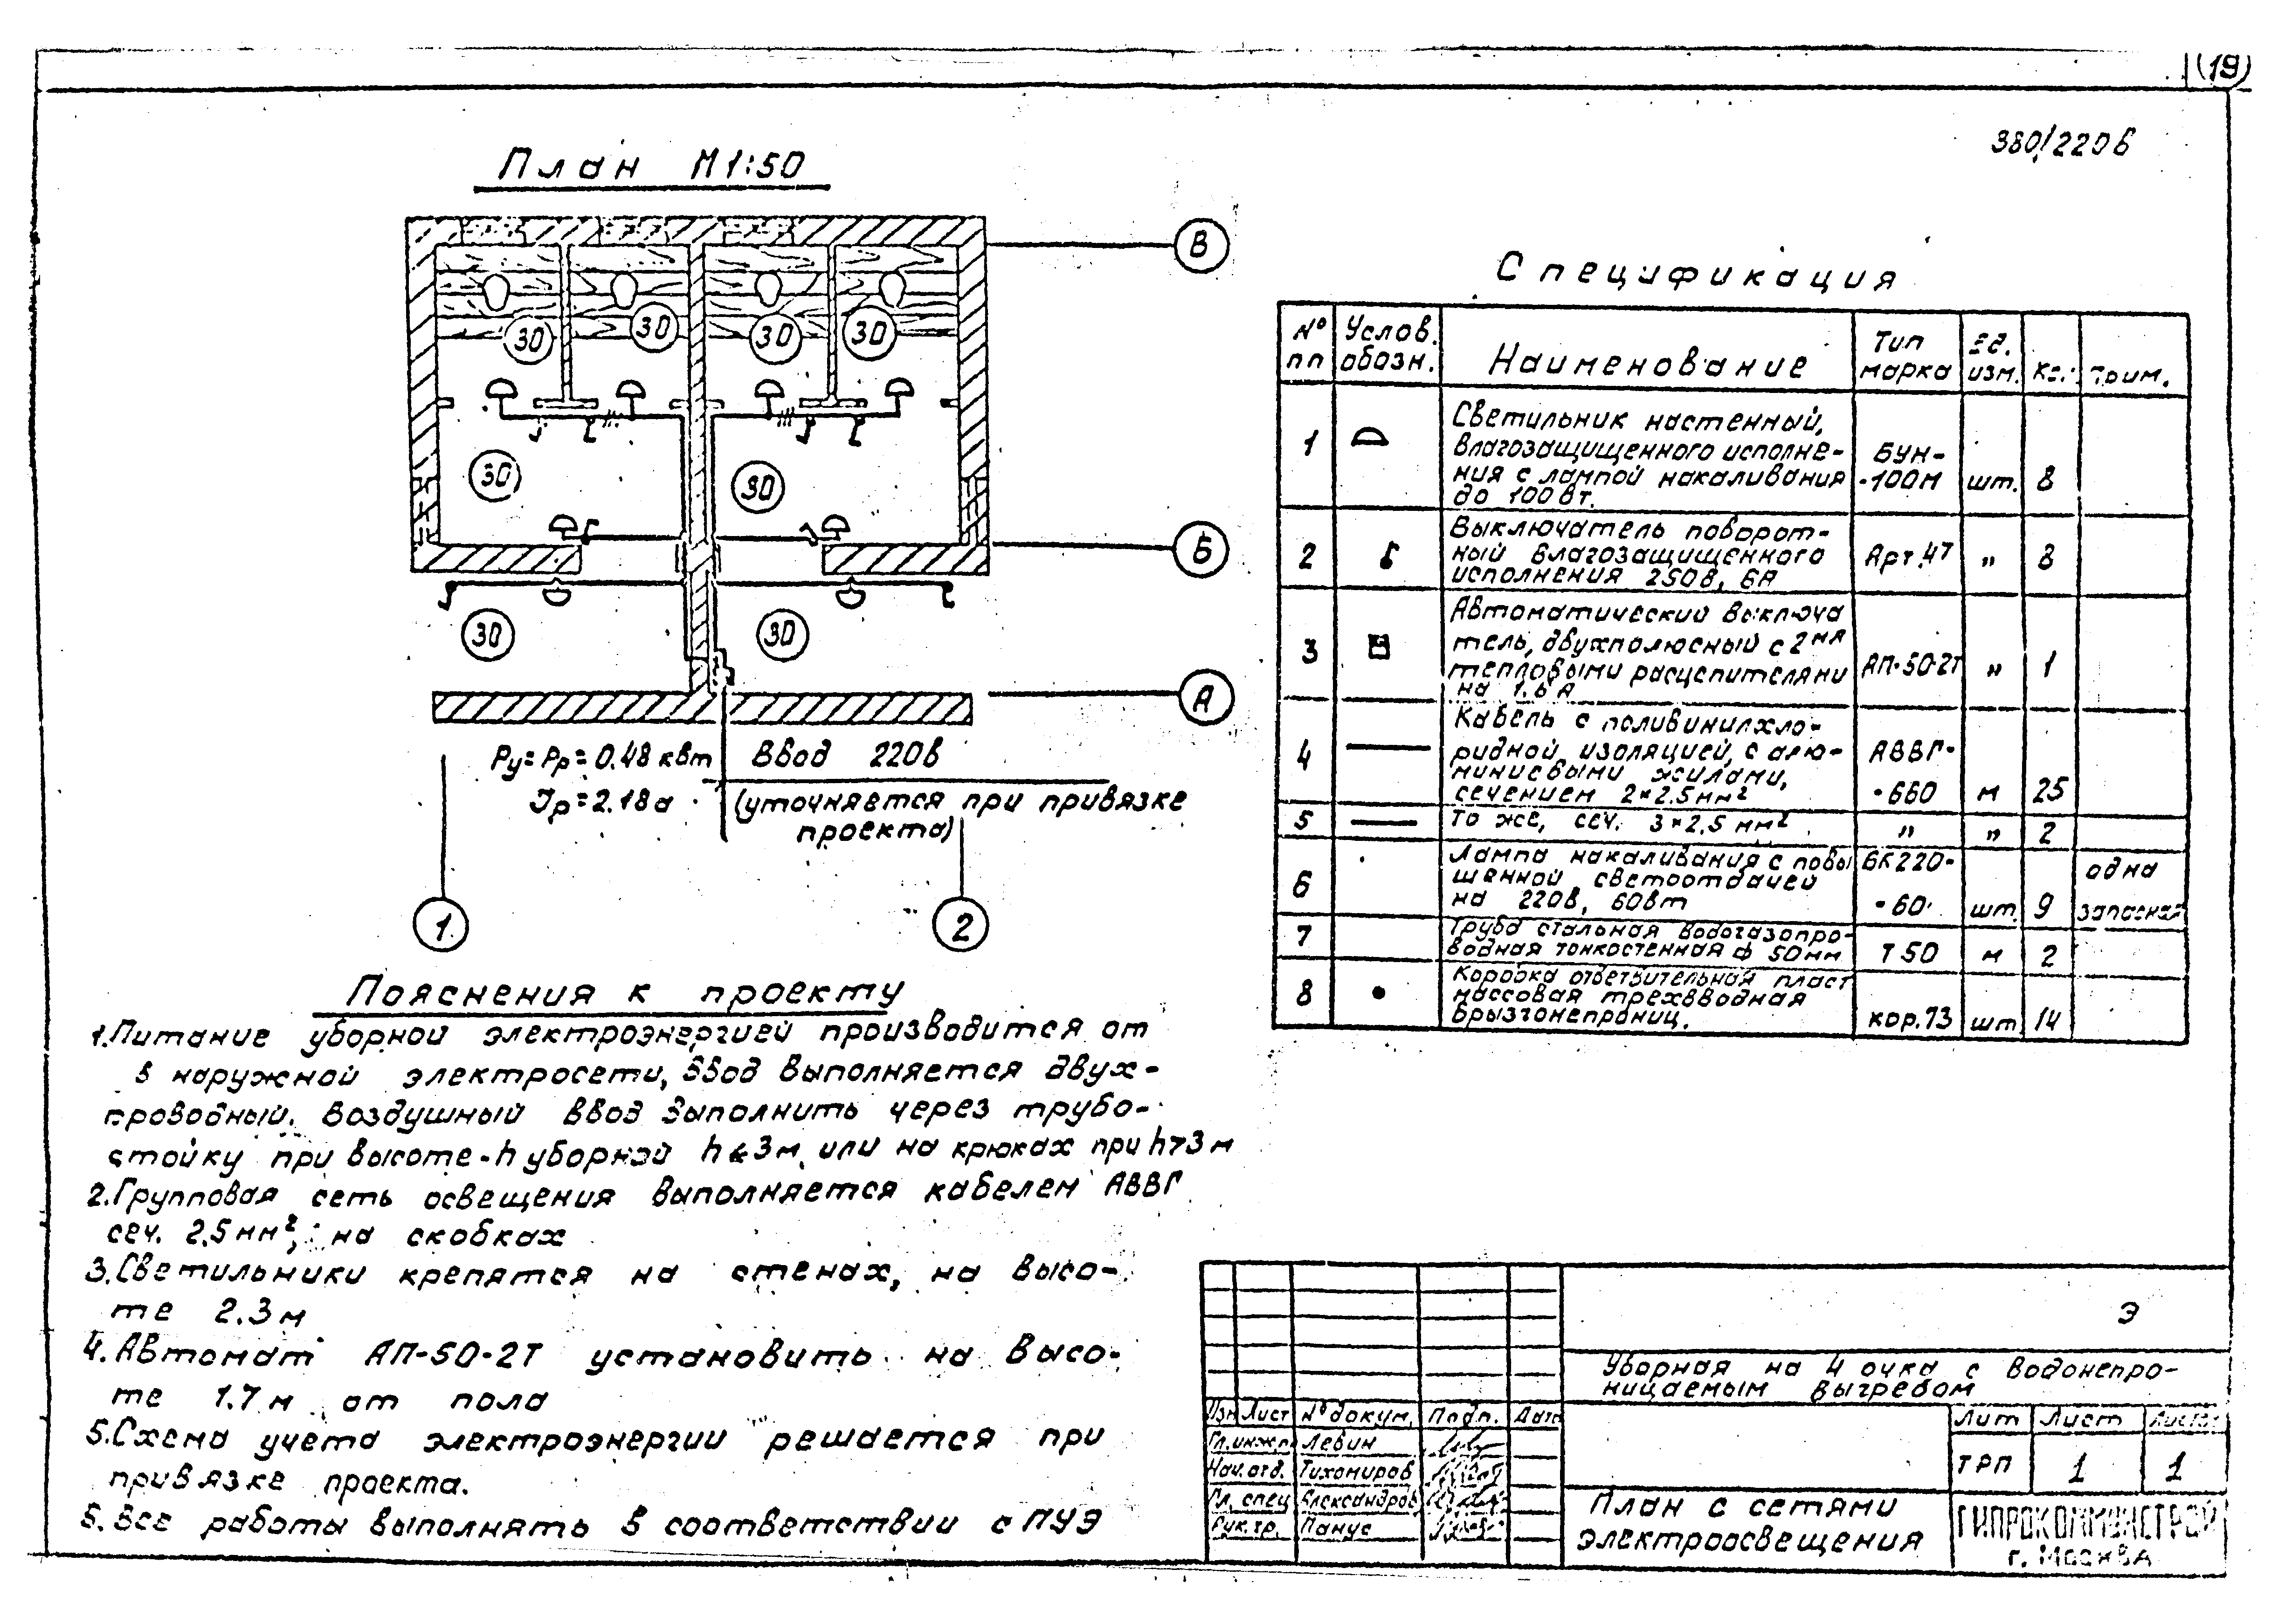 (19)
380/220в
План М1:50
В
30 30 30 30
30 30
Б
30 30
А
Ру=Рр=0.48 квт Ввод 220в
Jр=2.18а (уточняется при привязке
проекта)
1 2
Спецификация
№ пп
Услов. обозн.
Наименование
Тип марка
Ед. изм.
Кол.
Прим.
1
Светильник настенный,
влагозащищенного исполне-
ния с лампой накаливания
до 100 вт.
БУН-
-100М
шт.
8
2
Выключатель поворот-
ный влагозащищенного
исполнения 250в, 6А
Арт.47
"
8
3
Автоматический выключа
тель, двухполюсный с 2мя
тепловыми расцепителями
на 1.6 А
АП-50-2Т
"
1
4
Кабель с поливинилхло-
ридной изоляцией, с алю-
миниевыми жилами,
сечением 2×2.5мм²
АВВГ-
-660
м
25
5
То же, сеч. 3×2.5 мм²
"
"
2
6
Лампа накаливания с повы
шенной светоотдачей
на 220в, 60вт
БК220-
-60
шт.
9
одна
запасная
7
Труба стальная водогазопро-
водная тонкостенная ф 50мм
Т50
м
2
8
Коробка ответвительная пласт
массовая трехвводная
брызгонепрониц.
кор.73
шт
14
Пояснения к проекту
1.Питание уборной электроэнергией производится от
в наружной электросети, ввод выполняется двух-
проводный. Воздушный ввод выполнить через трубо-
стойку при высоте-h уборной h≤3м, или на крюках при h>3м
2.Групповая сеть освещения выполняется кабелем АВВГ
сеч. 2.5мм², на скобках
3.Светильники крепятся на стенах, на высо-
те 2.3м
4.Автомат АП-50-2Т установить на высо-
те 1.7м от пола
5.Схема учета электроэнергии решается при
привязке проекта.
6.Все работы выполнять в соответствии с ПУЭ
Э
Уборная на 4 очка с водонепро-
ницаемым выгребом
Изм Лист № докум. Подп. Дата
Гл.инж.п Левин
Нач.отд. Тихомиров
Гл. спец Александров
Рук.гр. Панус
Лит Лист Листов
ТРП 1 1
План с сетями
электроосвещения
ГИПРОКОММУНСТРОЙ
г. Москва